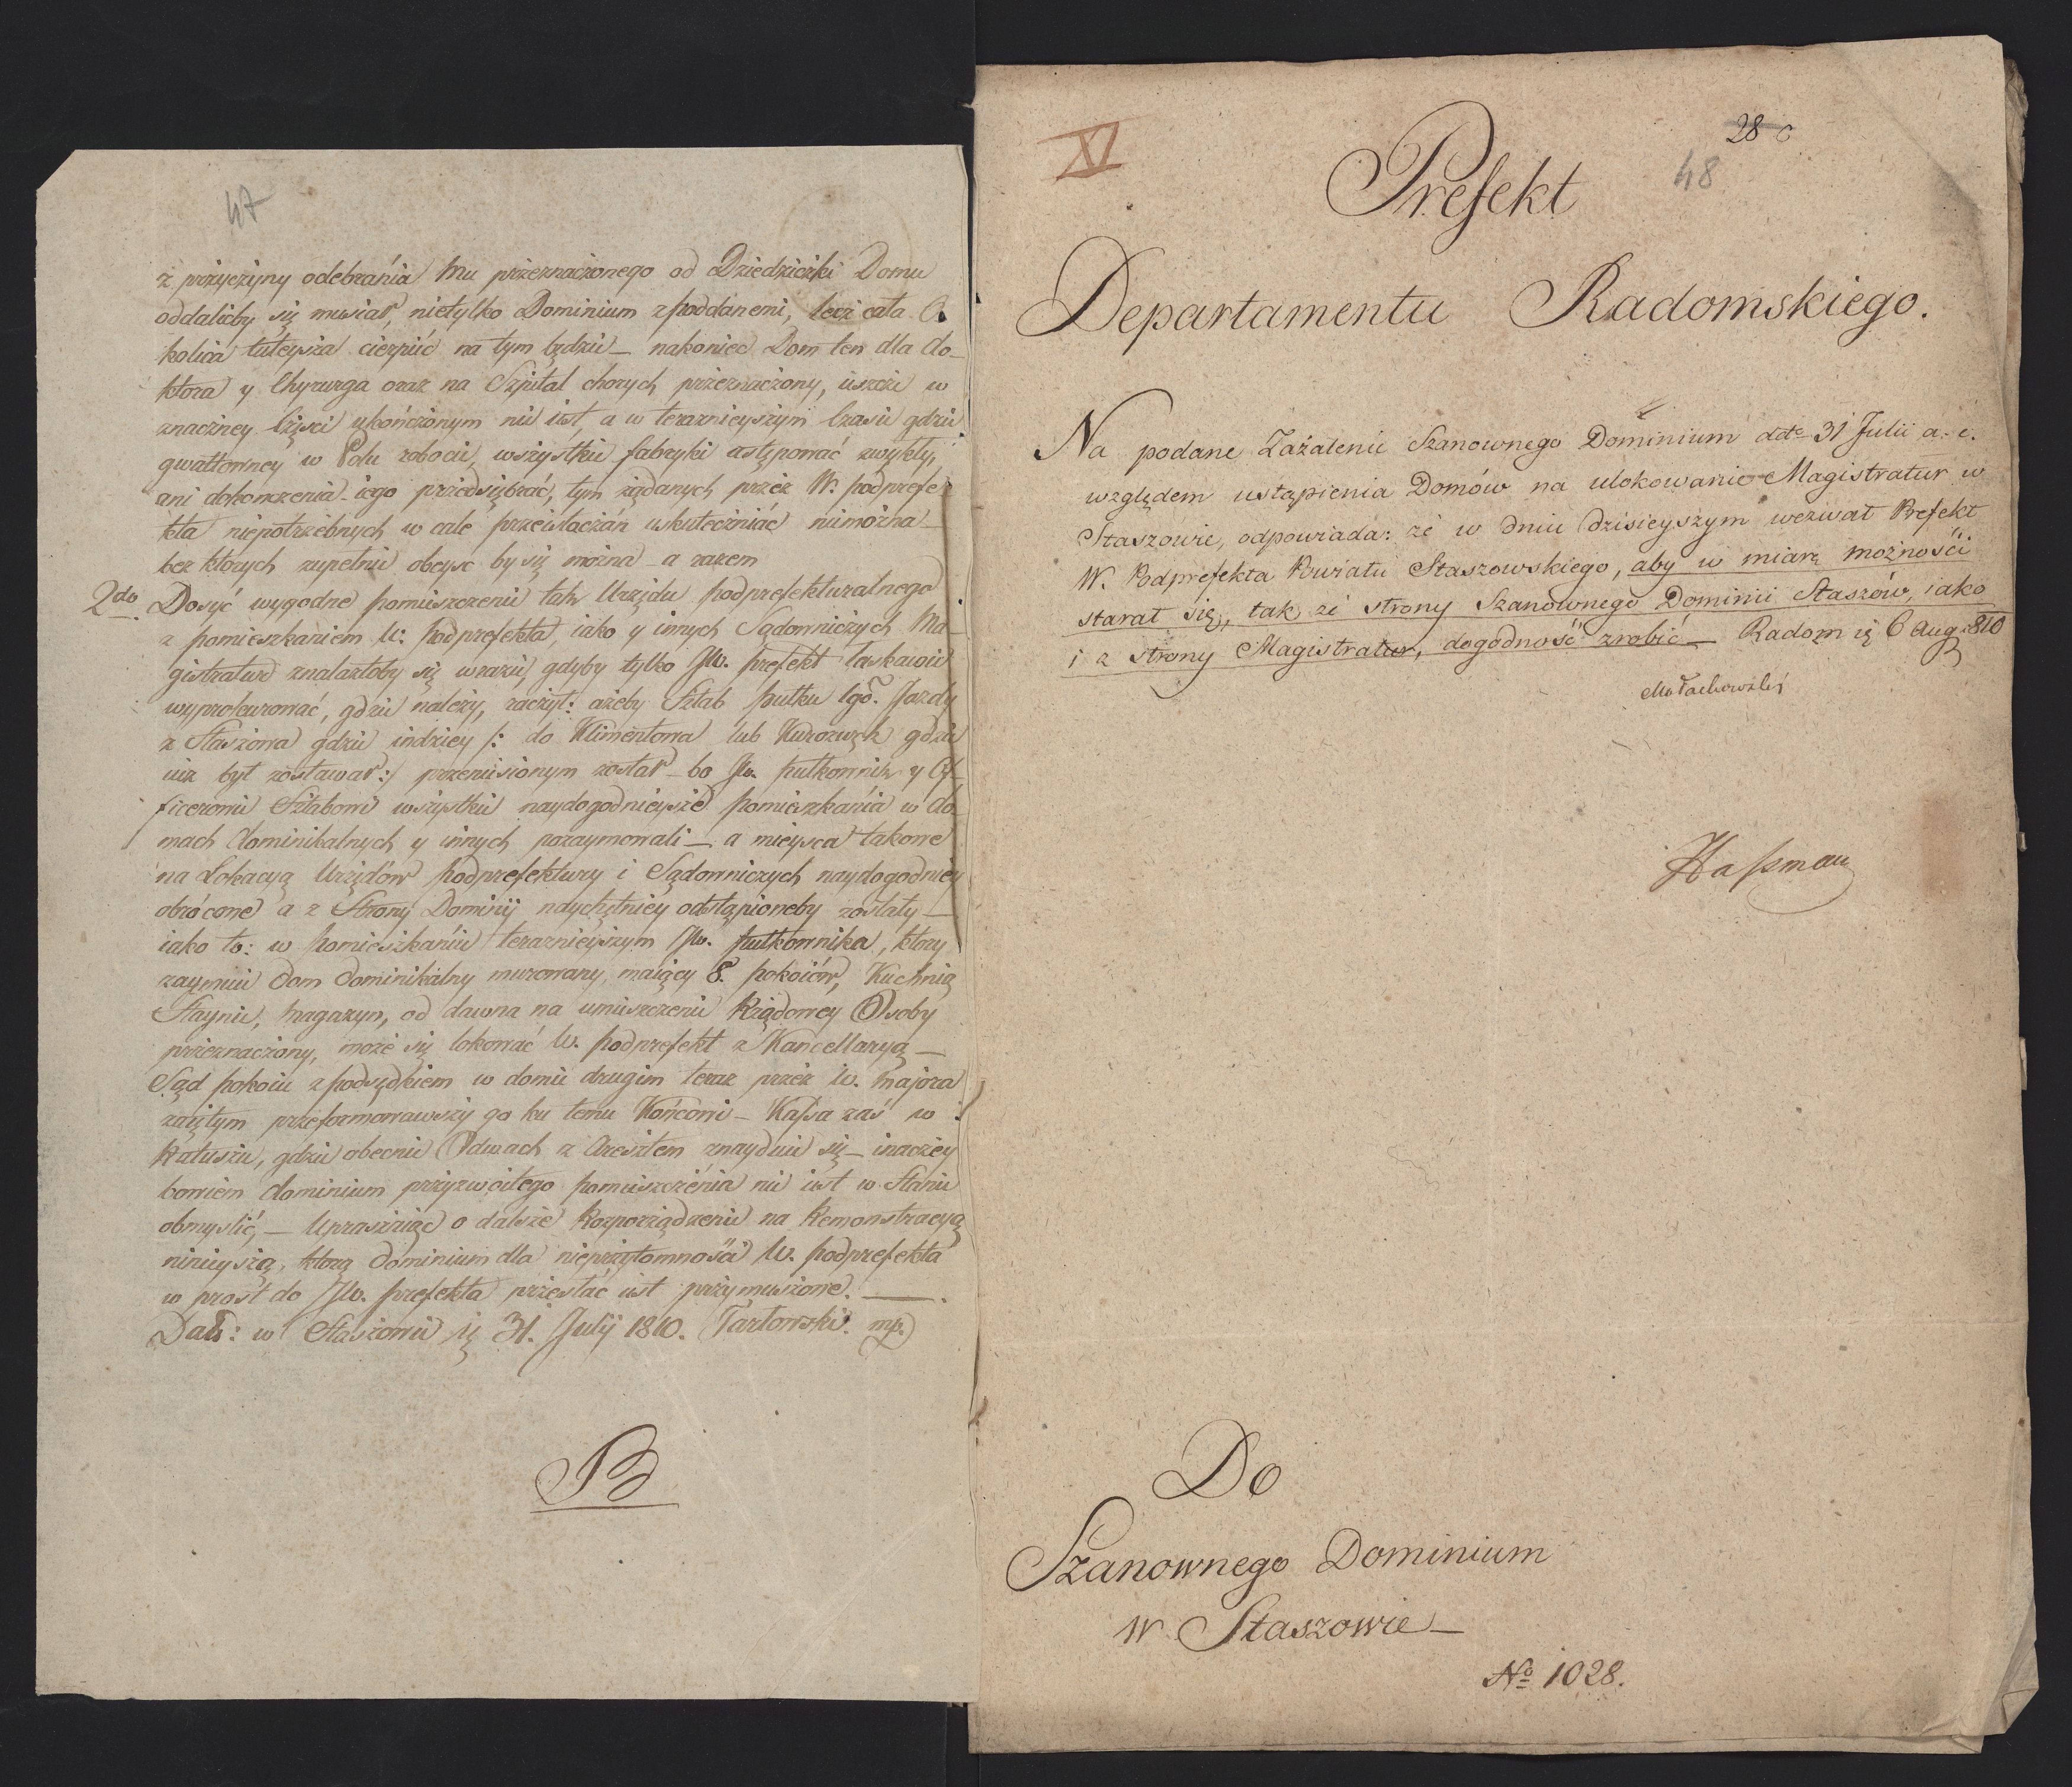 47
z przyczyny odebrania Mu przeznaczonego od Dziedziczki Domu
oddalićby się musiał, nietylko Dominium z poddanemi, lecz cała O
kolica tuteysza cierpić na tym będzie – nakoniec Dom ten dla do-
ktora y Chyrurga oraz na Szpital chorych przeznaczony, ieszcze w
znaczney Części ukończonym nie iest, a w teraznieyszym Czasie gdzie
gwałtowney w Polu robocie, wszystkie fabryki ustępować zwykły,
ani dokonczenia iego przedsiębrać, tym żądanych przez W. podprefe-
kta niepotrzebnych w cale przeistaczań uskuteczniać niemożna –
bez których zupełnie obeysć by się można – a razem
2do. Dosyć wygodne pomieszczenie tak Urzędu podprefekturalnego
z pomieszkaniem W: Podprefekta, iako y innych Sądowniczych Ma-
gistratur znalazłoby się wrazie, gdyby tylko JW. prefekt łaskawie
wyprokurować, gdzie należy, raczył: ażeby Sztab pułku 1go. Jazdy
z Staszowa gdzie indziey /: do Klimontowa lub Kurozwęk gdzie
iuż był zostawał :/ przeniesionym został – bo JW. pułkownik y Of-
ficerowie Sztabowi wszystkie naydogodnieysze pomieszkania w do-
mach Dominikalnych y innych pozaymowali – a mieysca takowe
na Lokacyą Urzędów podprefektury i Sądowniczych naydogodniey
obrócone a z Strony Dominij naychętniey odstąpioneby zostały –
iako to: w pomieszkaniu teraznieyszym JW. pułkownika, ktory
zaymuie dom dominikalny murowany, maiący 8. pokoiów, Kuchnią
Staynie, magazyn, od dawna na umieszczenie Rządowey Osoby
przeznaczony, może się lokować W. podprefekt z Kancellaryą –
Sąd pokoiu z podsędkiem w domu drugim teraz przez W. Majora
zaiętym przeformowawszy go ku temu Końcowi – Kassa zaś w
Ratuszu, gdzie obecnie Odwach z Aresztem znayduie się – inaczey
bowiem dominium przyzwoitego pomieszczenia nie iest w Stanie
obmyslić, – Upraszaiąc o dalsze Rozporządzenie na Remonstracyą
ninieyszą, ktorą dominium dla nieprzytomności W. podprefekta
w prost do JW. prefekta przesłać iest przymuszone. –
Dat: w Staszowie ię 31. Julij 1810. Tarłowski. mp.)
B
XI
28
48
Prefekt
Departamentu Radomskiego.
Na podane Zażalenie Szanownego Dominium ddto 31 Julii a. c.
względem ustąpienia Domów na ulokowanie Magistratur w
Staszowie, odpowiada: że w dniu dzisieyszym wezwał Prefekt
W. Podprefekta Powiatu Staszowskiego, aby w miarę możności
starał się, tak ze strony Szanownego Dominii Staszów, iako
i z strony Magistratur, dogodność zrobić – Radom ię 6 Aug: 810
Małachowski
Hassman
Do
Szanownego Dominium
W Staszowie –
No 1028.